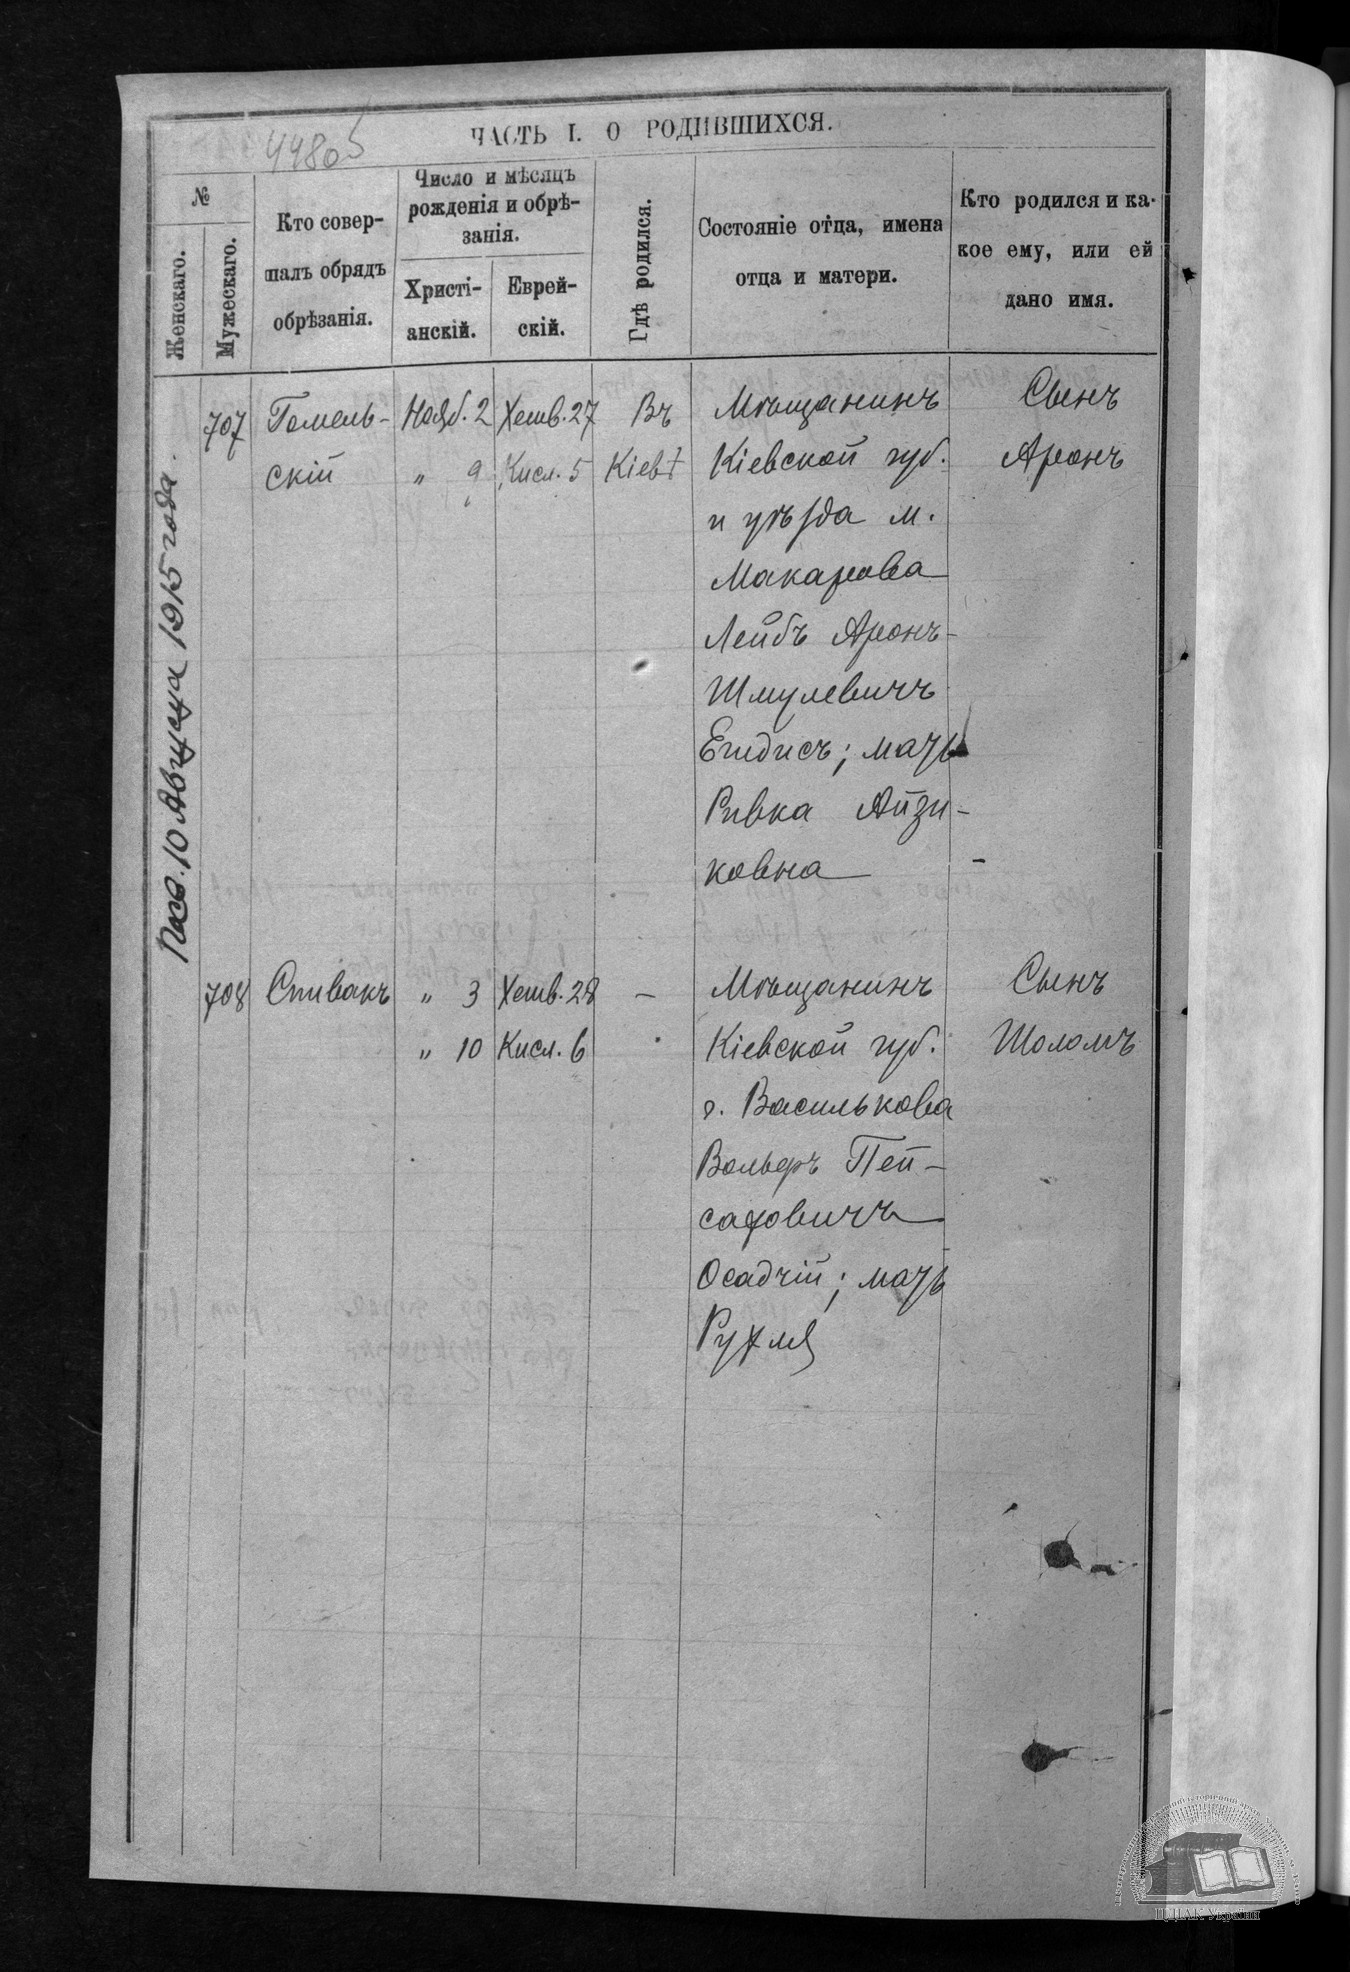 44805
ЧАСТЬ I. О РОДИВШИХСЯ.
№
Женскаго.
Мужескаго.
Кто совер-
шалъ обрядъ
обрѣзанія.
Число и мѣсяцъ
рожденія и обрѣ-
занія.
Христі-
анскій.
Еврей-
скій.
Гдѣ родился.
Состояніе отца, имена
отца и матери.
Кто родился и ка-
кое ему, или ей
дано имя.
10 Августа 1915 года.
707 Гомель- Нояб. 2 Хешв. 27 Въ Мѣщанинъ Сынъ
скій " 9 Кисл. 5 Кіевѣ Кіевской губ. Аронъ
и уѣзда м.
Макарова
Лейбъ Аронъ-
Шмулевичъ
Егидисъ; мать
Ривка Айзи-
ковна
708 Спивакъ " 3 Хешв. 28 — Мѣщанинъ Сынъ
" 10 Кисл. 6 Кіевской губ. Шоломъ
г. Василькова
Вольфъ Пей-
саховичъ
Осадчій; мать
Рухля
ЦДІАК України